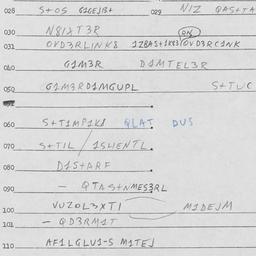 028 S+OS G1GEJB+ 029 NIZ QAS+TA
030 N81XT3R ON
031 OVD3RLINK8 12BAS+1KK3/OVD3RC1NK
040 G1M3R D1MTEL3R
050 G1M3RD1MGUPL S+TUC
060 S+T1MP1K8 QLAT DUS
070 S+TIL / 1SHENTL.
080 D1S+ARF
090 — QTAS+NMES3RL
100 VUZOL3XT1 M1DEJM
101 — QD3RM1T
110 AF1LGLU1-S M1TEJ